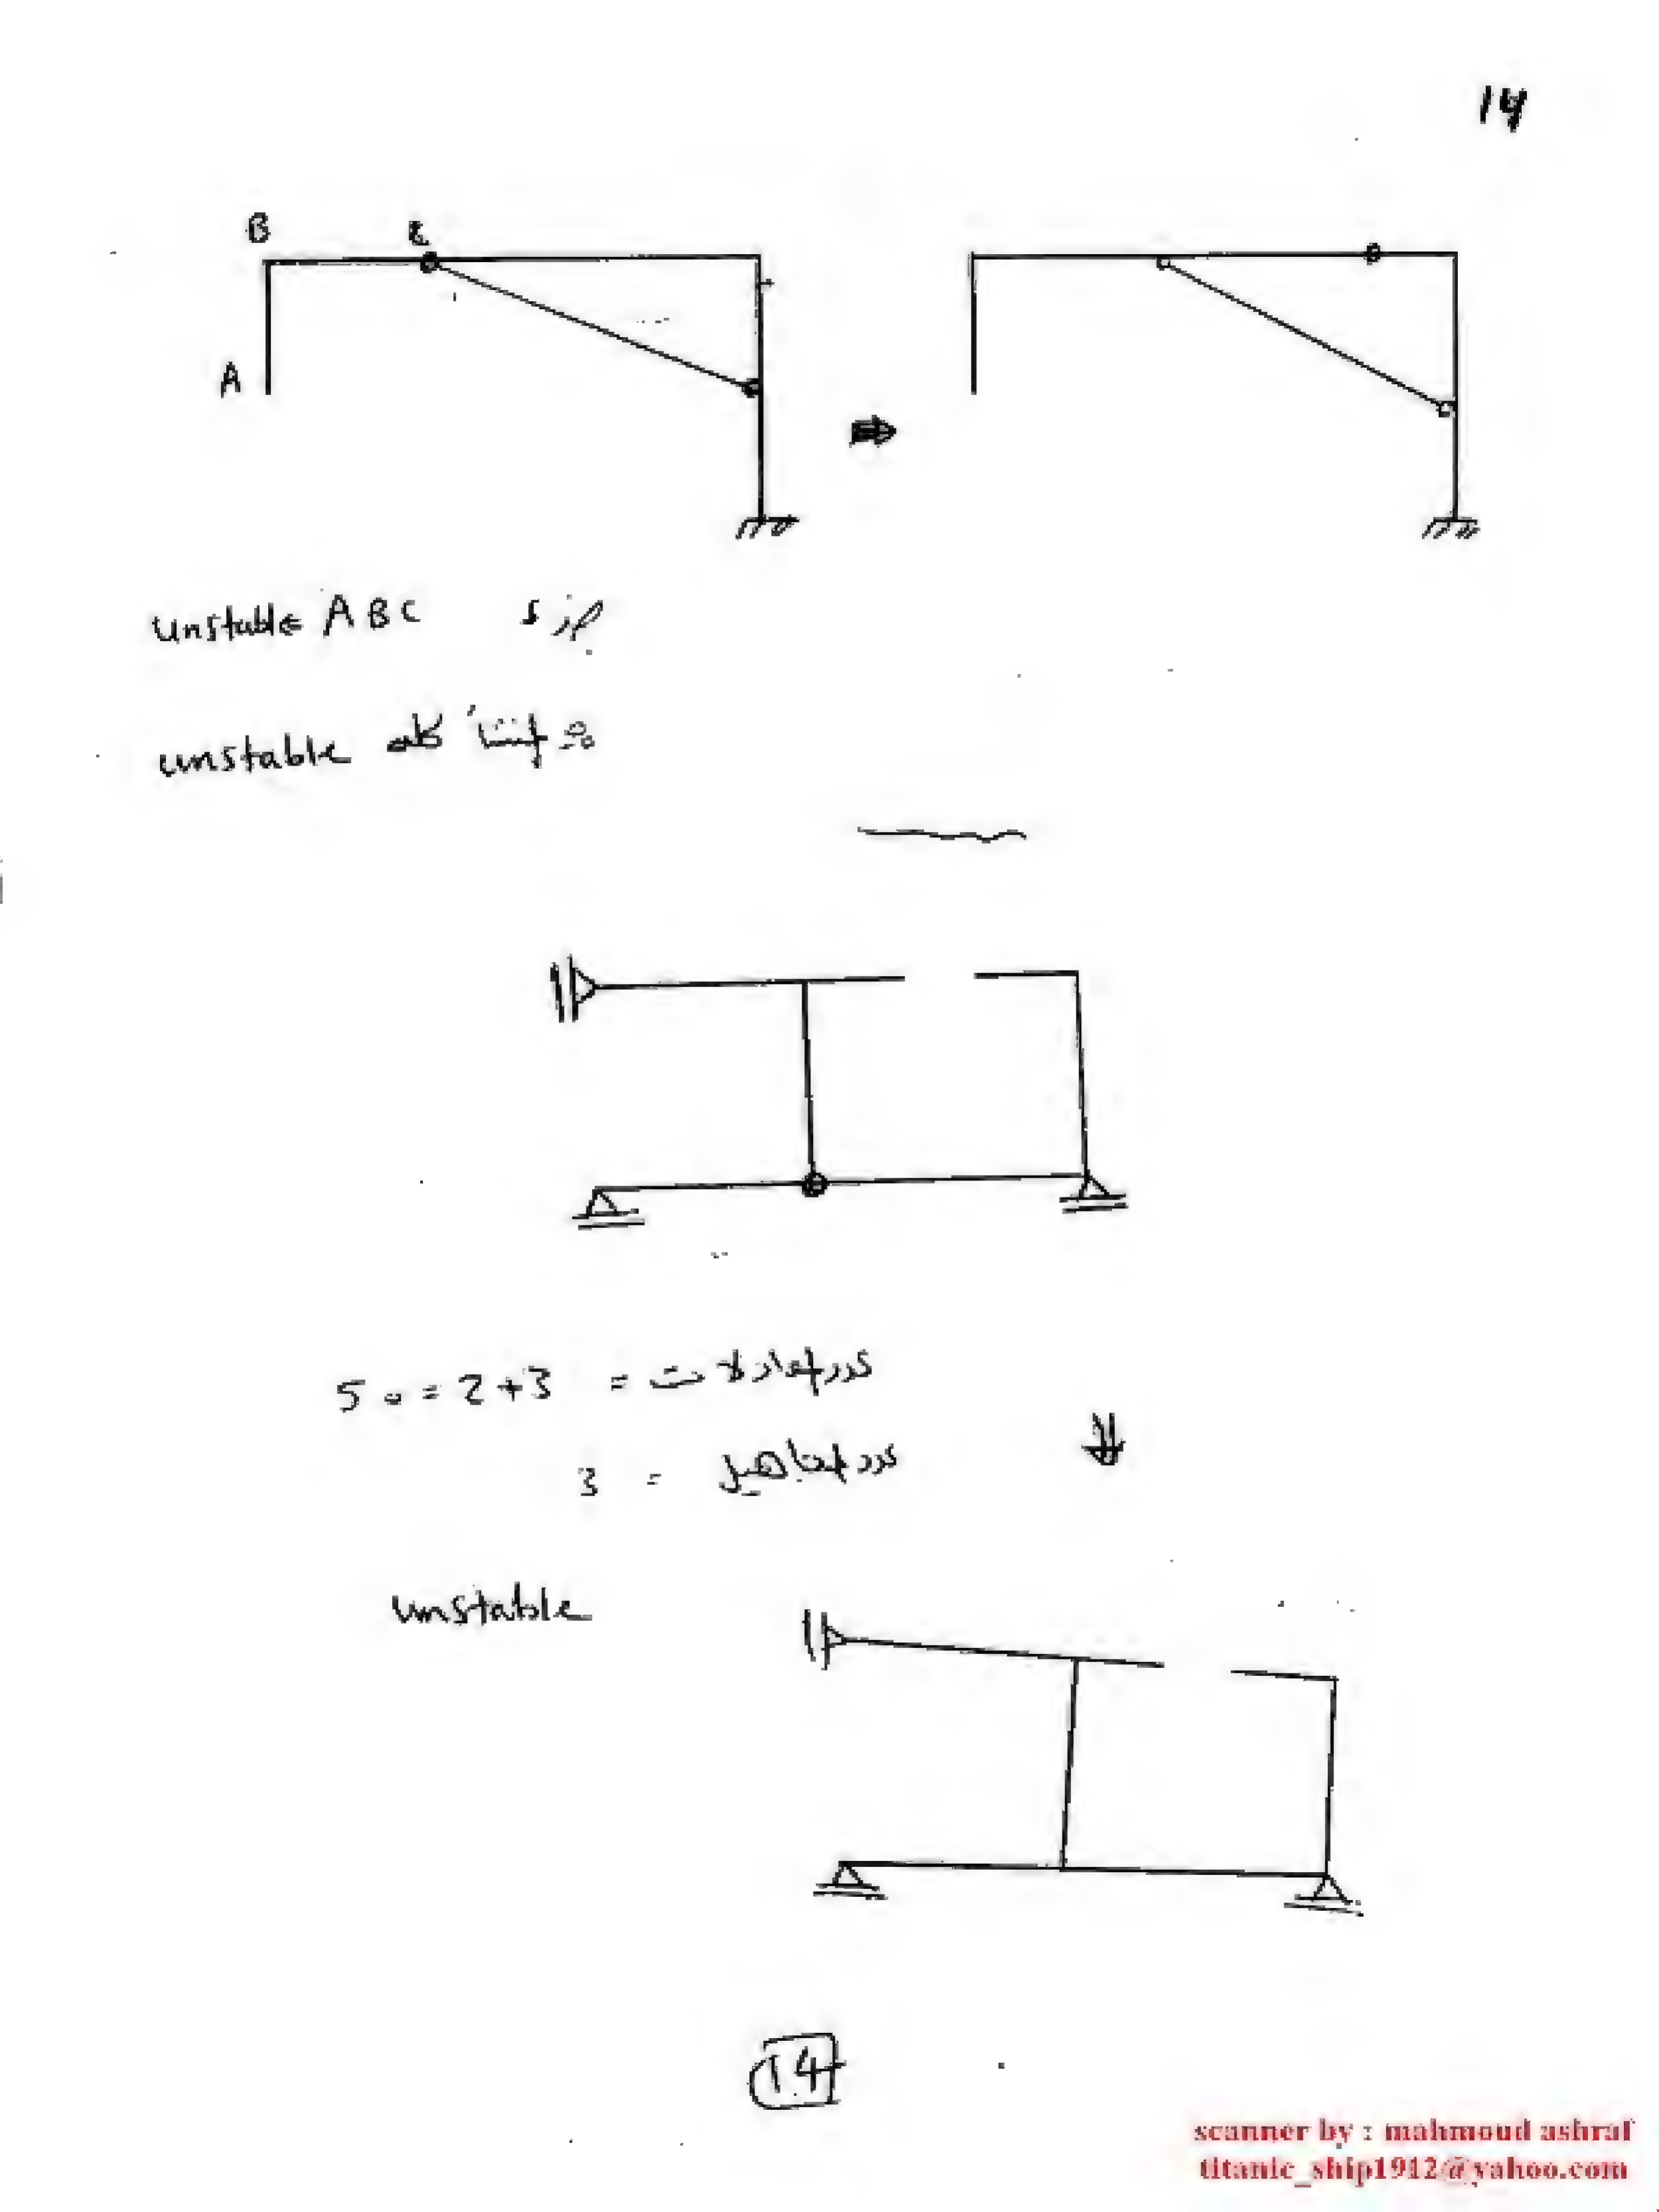 14
B C
A
unstable ABC جزء
unstable المنشأ كله
عدد المعادلات = 3+2 = 5
عدد المجاهيل = 3
unstable
14
scanner by : mahmoud ashraf
titanic_ship1912@yahoo.com